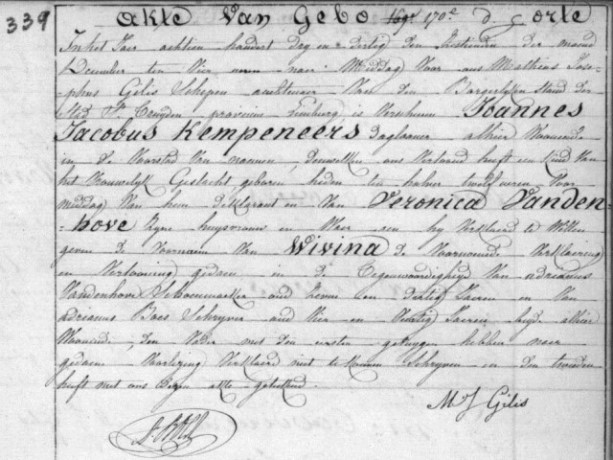 339
akte Van Gebo
In het Jaer achtien hondert dry en dertig den sestienden der maend
December ten Vier uren naer Middag Voor ons Mathias Jose-
phus Gelis Schepen ambtenaer Van den Burgerlyken Stand der
Stad St. Truyden provincie Limburg is Verschenen Joannes
Jacobus Kempeneers daglooner alhier Woonende
in de Voorstad Van den welken ons Verklaerd heeft een kind Van
het Vrouwelyk Geslacht, geboren heden ten halver twelf uren Voor
middag Van hem declarant en Van Veronica Vanden-
hove Zyne huysvrouw en Waer aen hy Verklaerd te Willen
geven de Voornaem Van Wivina de Voorwoende Verklaering
en Vertooning gedaen in de Tegenwoordigheyd Van adrianus
Vandenhove Schoenmaeker oud Zeven en dertig Jaeren en Van
adrianus Baes Schryver oud Vier en Veertig Jaeren beyde alhier
Woonende, den Vader met den eersten getuygen hebben naer
gedaene Voorlezing Verklaerd niet te konnen Schryven en den tweeden
heeft met ons dezen akte geteekend.
M J Gelis